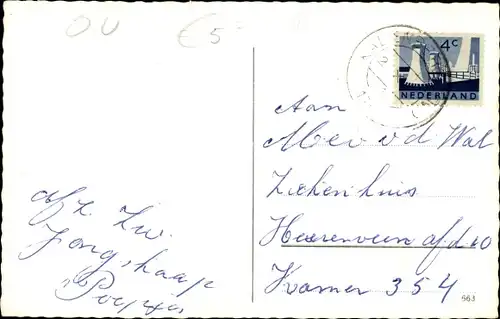 OU €5
4c
NEDERLAND
Aan
Mevr v.d. Wal
Ziekenhuis
Heerenveen afd 10
Kamer 354
afz. Zw.
Jongschaap
663